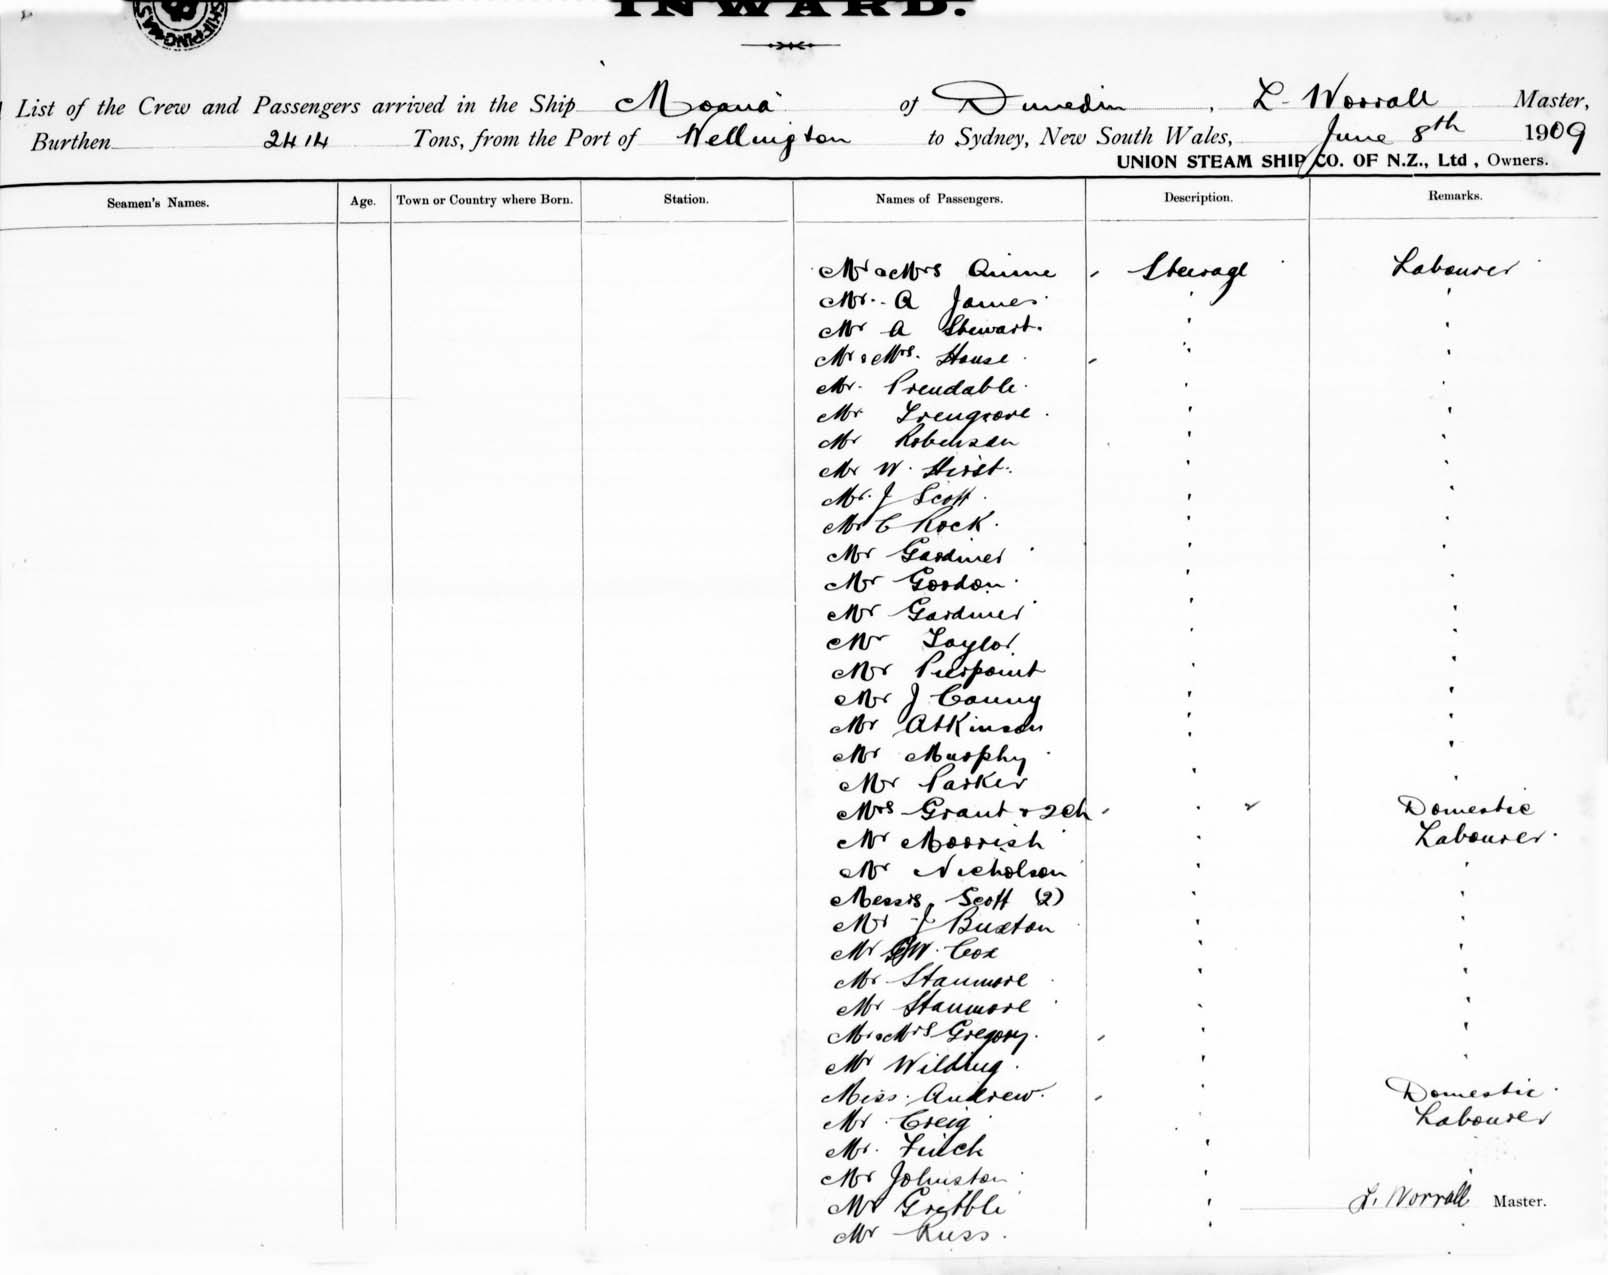 INWARD.
SHIPPING MAS
List of the Crew and Passengers arrived in the Ship Moana of Dunedin, L. Worrall Master,
Burthen 2414 Tons, from the Port of Wellington to Sydney, New South Wales, June 8th 1909
UNION STEAM SHIP CO. OF N.Z., Ltd, Owners.
Seamen's Names. Age. Town or Country where Born. Station. Names of Passengers. Description. Remarks.
Mr & Mrs Steerage Labourer
Mr. A James " "
Mr A Stewart. " "
Mr & Mrs. House " "
Mr. Prendable " "
Mr Trengrove " "
Mr Robinson " "
Mr W. Hirst " "
Mr. J Scott " "
Mr C Rock " "
Mr Gardiner " "
Mr Gordon " "
Mr Gardiner " "
Mr Taylor " "
Mr Pierpoint " "
Mr J Canny " "
Mr Atkinson " "
Mr Murphy " "
Mr Parker " "
Mrs Grant & 2 ch " Domestic
Mr Moorish " Labourer
Mr Nicholson " "
Messrs. Scott (2) " "
Mr J Buxton " "
Mr W. Cox " "
Mr Stanmore " "
Mr Stanmore " "
Mr & Mrs Gregory. " "
Mr Wilding " "
Miss. Andrew. " Domestic
Mr. Creig " Labourer
Mr. Finch "
Mr Johnston " "
Mr Gribble " L. Worrall Master.
Mr Russ. " "